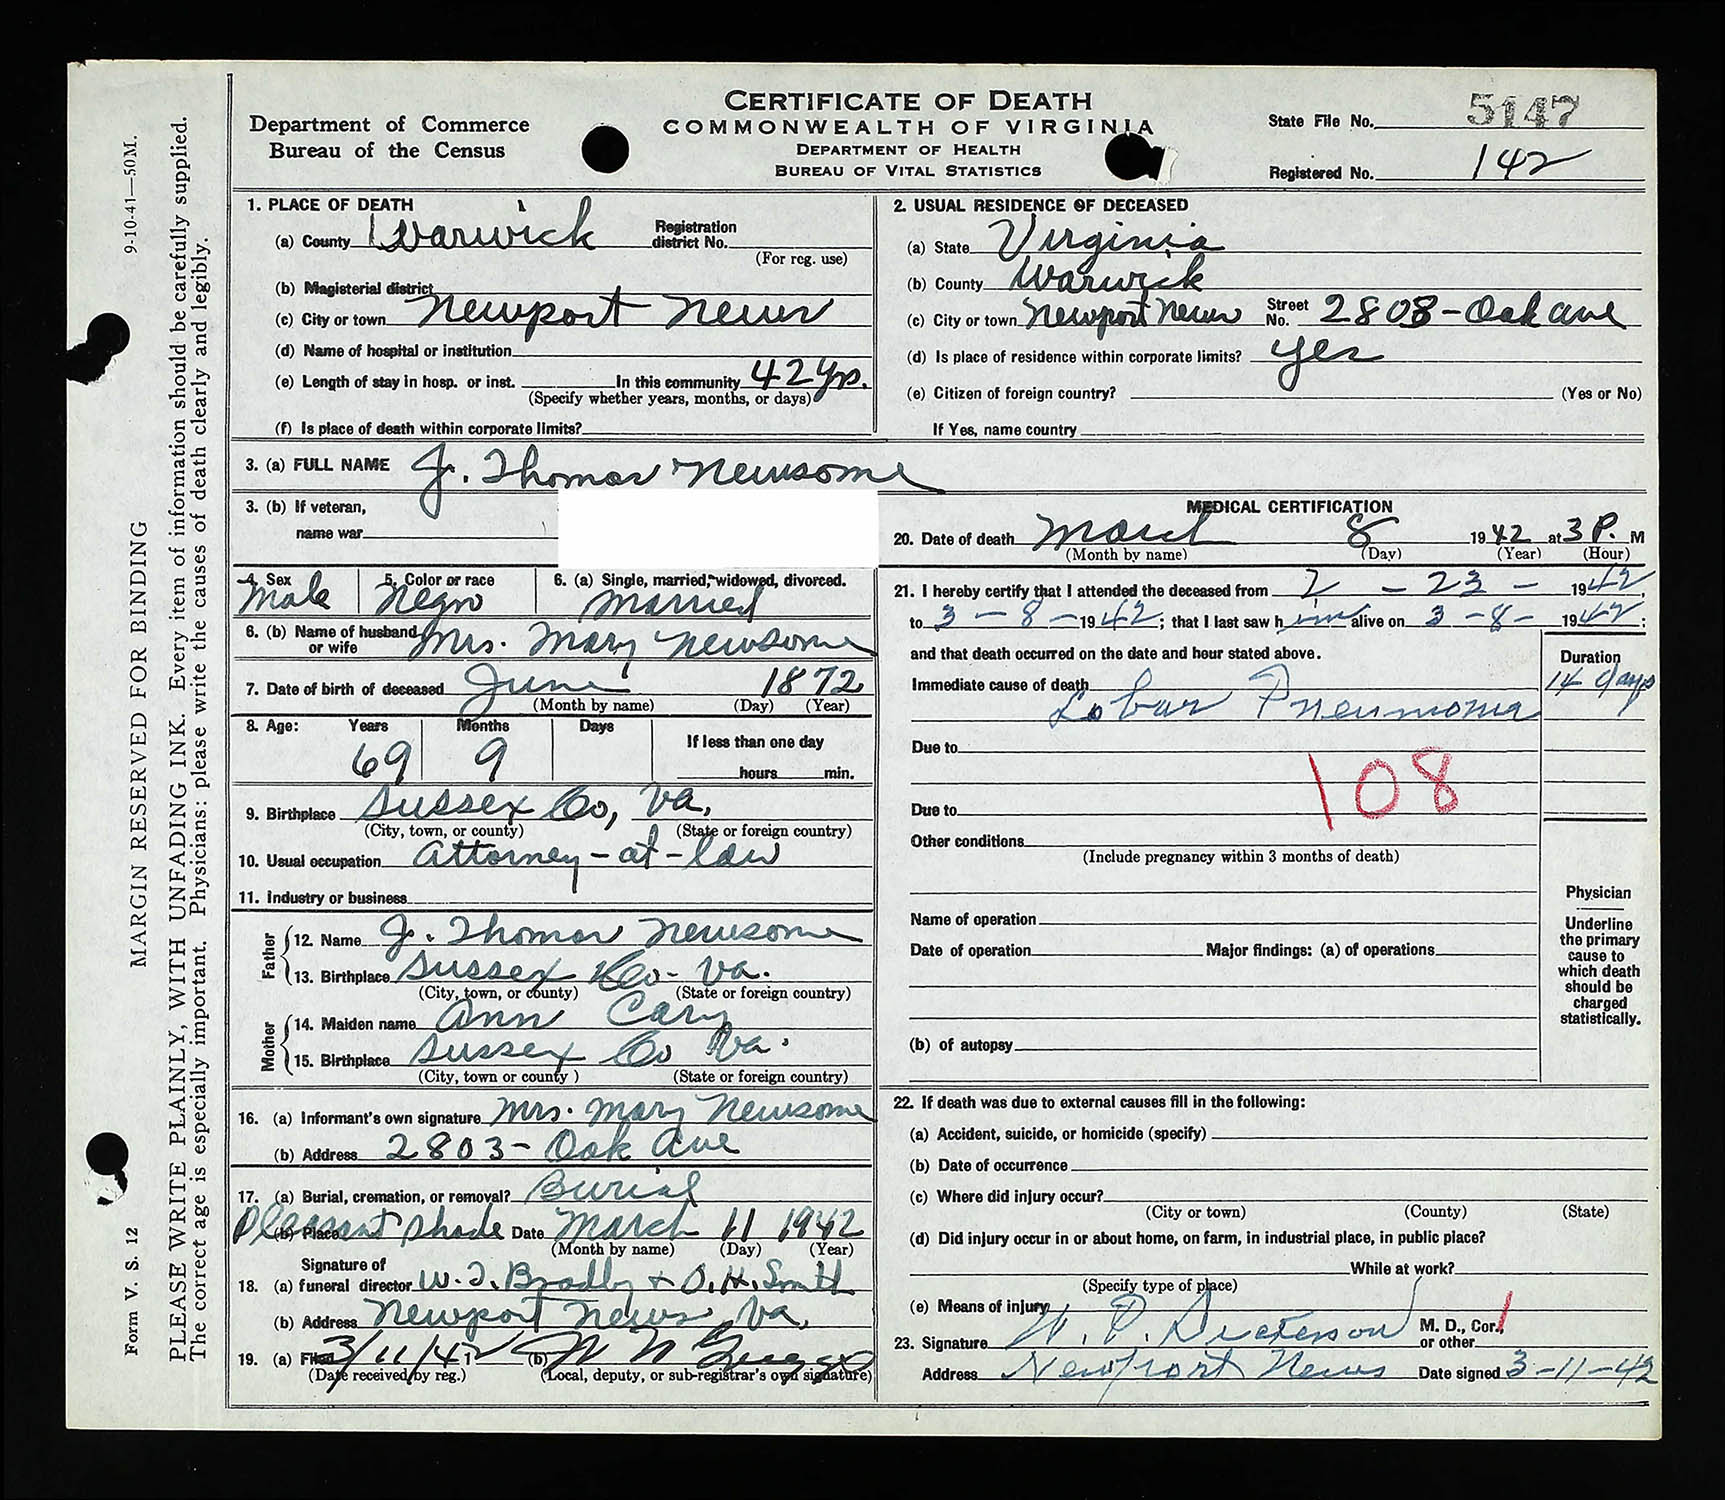 CERTIFICATE OF DEATH
COMMONWEALTH OF VIRGINIA
DEPARTMENT OF HEALTH
BUREAU OF VITAL STATISTICS
Department of Commerce
Bureau of the Census
State File No. 5147
Registered No. 142
1. PLACE OF DEATH
(a) County Warwick Registration district No.
(For reg. use)
(b) Magisterial district
(c) City or town Newport News
(d) Name of hospital or institution
(e) Length of stay in hosp. or inst. In this community 42 Yrs.
(Specify whether years, months, or days)
(f) Is place of death within corporate limits?
2. USUAL RESIDENCE OF DECEASED
(a) State Virginia
(b) County Warwick
(c) City or town Newport News Street No. 2803 - Oak ave
(d) Is place of residence within corporate limits? yes
(e) Citizen of foreign country? (Yes or No)
If Yes, name country
3. (a) FULL NAME J. Thomas Newsome
3. (b) If veteran,
name war
4. Sex Male
5. Color or race Negro
6. (a) Single, married, widowed, divorced. Married
6. (b) Name of husband or wife Mrs. Mary Newsome
7. Date of birth of deceased June 1872
(Month by name) (Day) (Year)
8. Age: Years Months Days If less than one day
69 9 hours min.
9. Birthplace Sussex Co, Va.
(City, town, or county) (State or foreign country)
10. Usual occupation Attorney - at - law
11. Industry or business
Father
12. Name J. Thomas Newsome
13. Birthplace Sussex Co. Va.
(City, town, or county) (State or foreign country)
Mother
14. Maiden name Ann Cary
15. Birthplace Sussex Co Va.
(City, town or county ) (State or foreign country)
16. (a) Informant's own signature Mrs. Mary Newsome
(b) Address 2803 - Oak Ave
17. (a) Burial, cremation, or removal? Burial
(b) Place Pleasant Shade Date March 11 1942
(Month by name) (Day) (Year)
Signature of
18. (a) funeral director W. T. Bradby + O. H. Smith
(b) Address Newport News, Va.
19. (a) Filed 3/11/42 (b)
(Date received by reg.) (Local, deputy, or sub-registrar's own signature)
MEDICAL CERTIFICATION
20. Date of death March 8 1942 at 3 P. M
(Month by name) (Day) (Year) (Hour)
21. I hereby certify that I attended the deceased from 2 - 23 - 1942,
to 3 - 8 - 1942; that I last saw him alive on 3 - 8 - 1942;
and that death occurred on the date and hour stated above.
Duration
Immediate cause of death 14 days
Lobar Pneumonia
Due to
108
Due to
Other conditions
(Include pregnancy within 3 months of death)
Name of operation
Date of operation Major findings: (a) of operations
(b) of autopsy
Physician
Underline
the primary
cause to
which death
should be
charged
statistically.
22. If death was due to external causes fill in the following:
(a) Accident, suicide, or homicide (specify)
(b) Date of occurrence
(c) Where did injury occur?
(City or town) (County) (State)
(d) Did injury occur in or about home, on farm, in industrial place, in public place?
While at work?
(Specify type of place)
(e) Means of injury
23. Signature W. P. Dickerson M. D., Cor., or other
Address Newport News Date signed 3-11-42
9-10-41—50M.
MARGIN RESERVED FOR BINDING
Form V. S. 12
PLEASE WRITE PLAINLY, WITH UNFADING INK. Every item of information should be carefully supplied.
The correct age is especially important. Physicians: please write the causes of death clearly and legibly.